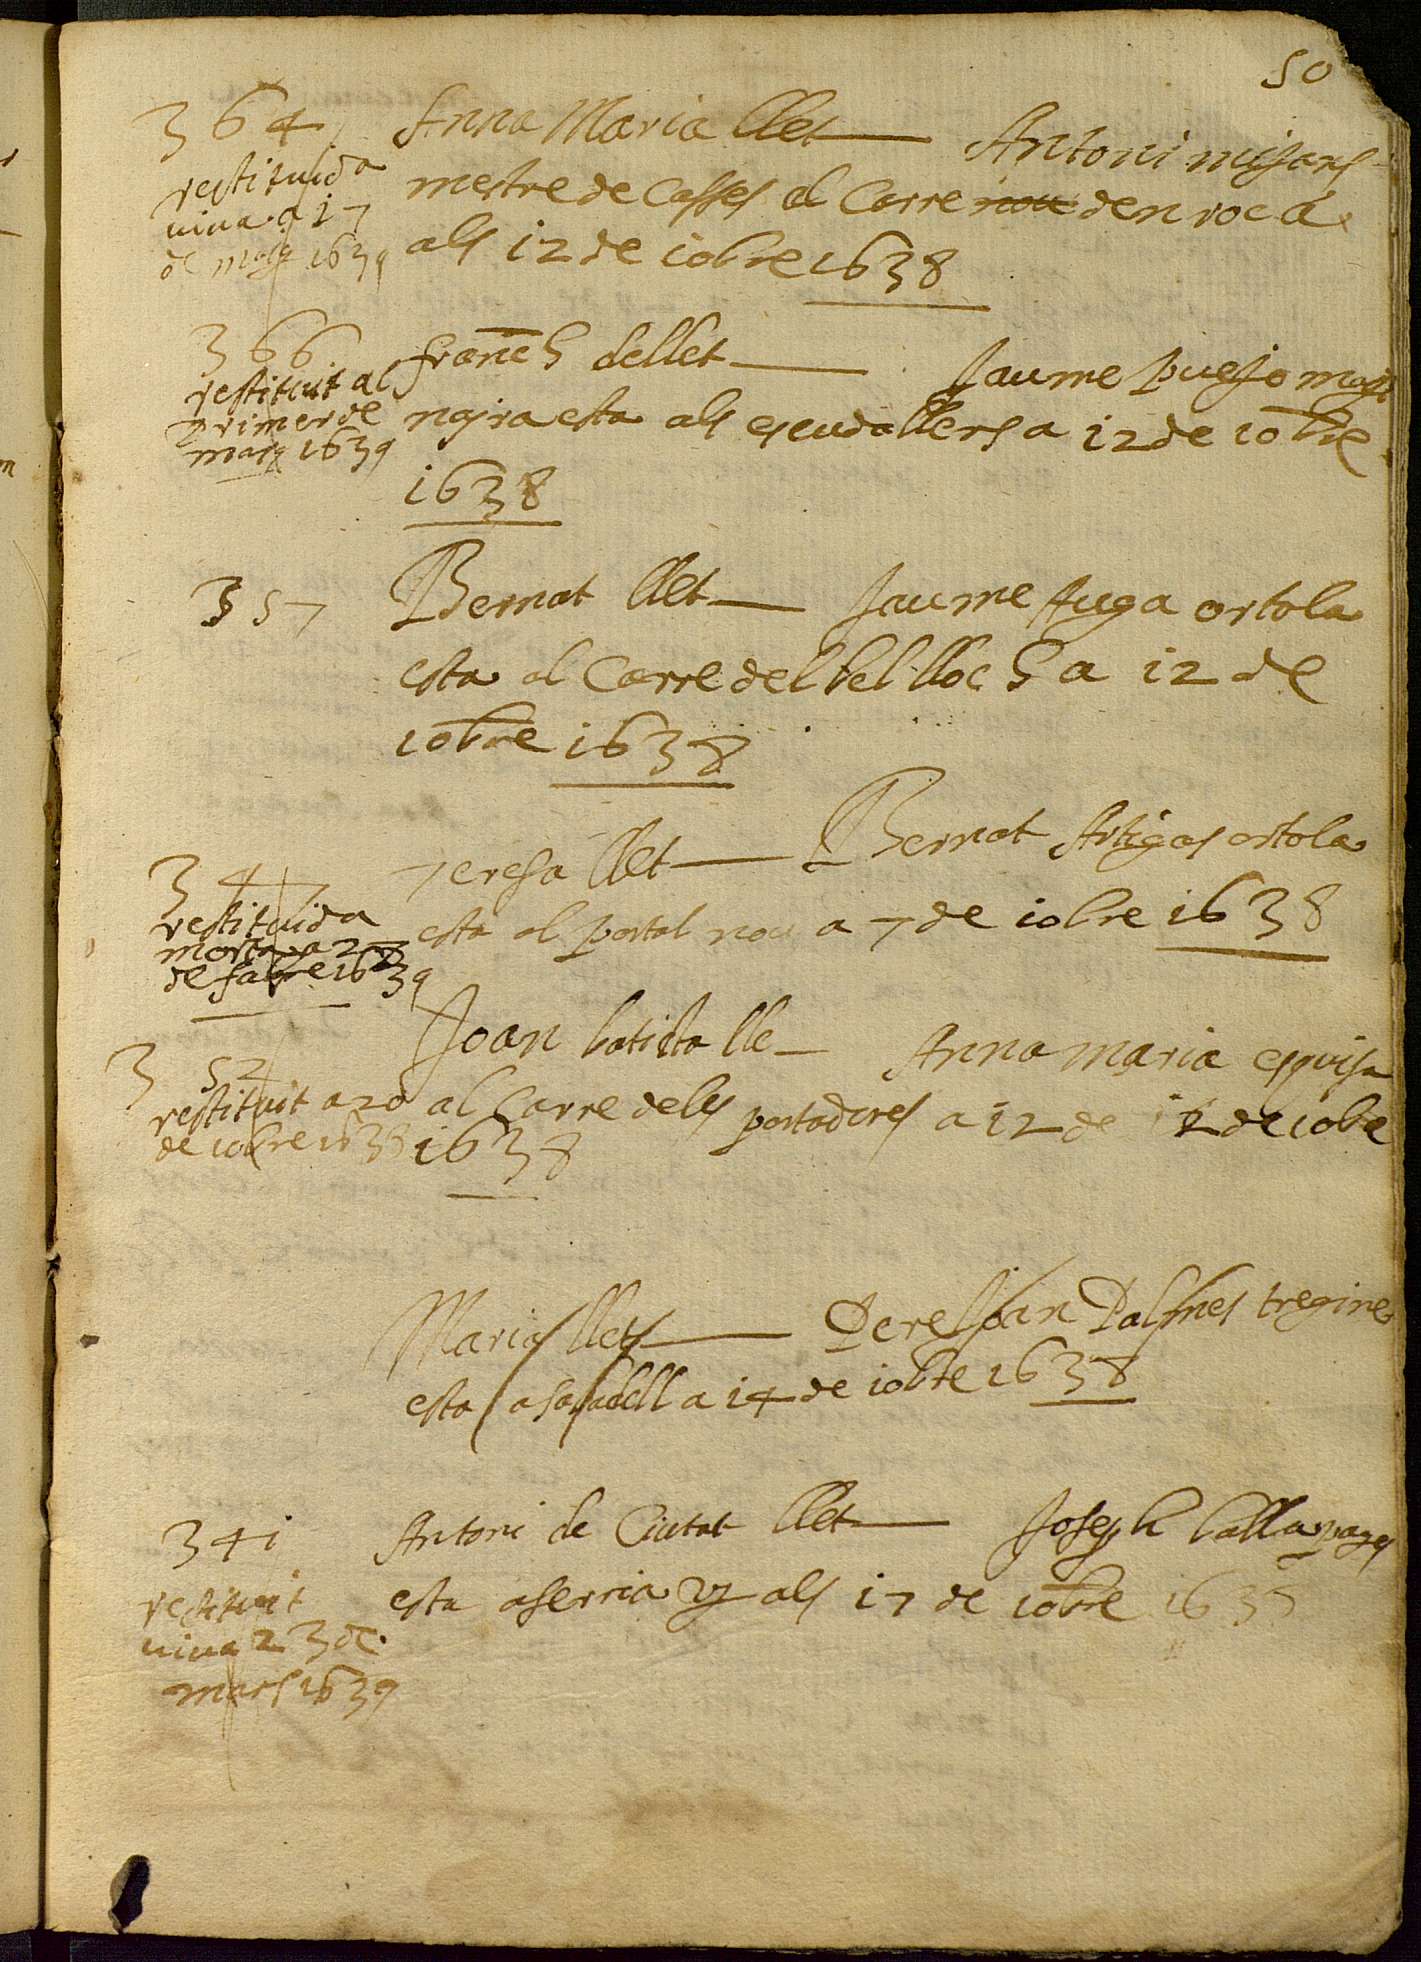 50
364
restituida
viva a 17
de mag 1639
Anna Maria llet — Antoni mijans
mestre de Casses al Carre nou den roca
als 12 de 10bre 1638
366
restituit al
primer de
mars 1639
franch dellet — Jaume pujo
esta als escudallers a 12 de 10bre
1638
357
Bernat llet — Jaume fuga ortola
esta al Carre del bel lloch a 12 de
10bre 1638
347
restituida
morta a 27
de fabre 1639
Teresa llet — Bernat Artigas ortola
esta al portal nou a 7 de 10bre 1638
352
restituit a 20
de 10bre 1638
Joan batista lle — Anna maria
al Carre deles portadores a 12 de 12 de 10bre
1638
Maria llet — Pere Joan Palmes tregine
esta a sabadell a 14 de 10bre 1638
341
restituit
viva 23 de
mars 1639
Antoni de Ciutat llet — Joseph balla pages
esta a servia als 17 de 10bre 163